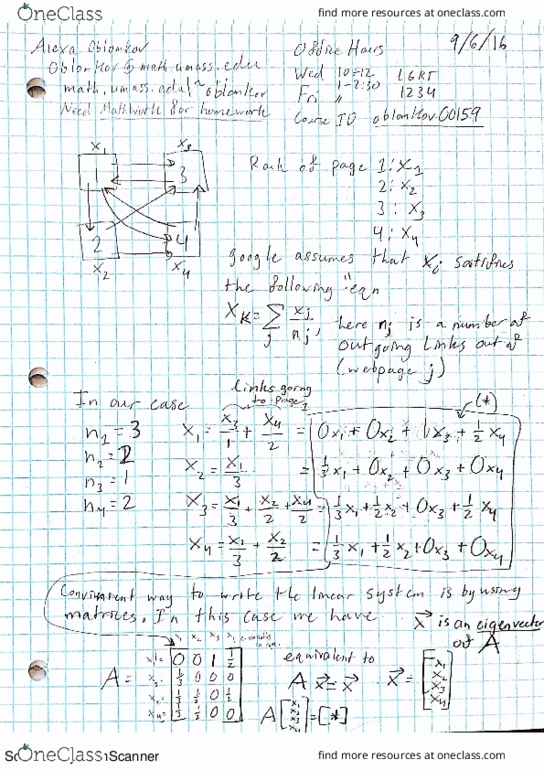 OneClass
find more resources at oneclass.com
Alexa Oblomkov
Oblomkov@math.umass.edu
math.umass.edu/~oblomkov
Need Mathwork for homework
Office Hours
Wed 10-12 LGRT
Fri 1-2:30 1234
Course ID oblomkov00159
9/6/16
x₁ x₃
1 3
2 4
x₂ x₄
Rank of page 1: x₁
2: x₂
3: x₃
4: x₄
google assumes that xᵢ satisfies
the following eqn
x_K = Σ_j x_j/n_j, here n_j is a number of
outgoing links out of
(webpage j)
In our case
n₁ = 3
n₂ = 2
n₃ = 1
n₄ = 2
links going
to page 1
(*)
x₁ = x₃/1 + x₄/2 = 0x₁ + 0x₂ + 1x₃ + ½x₄
x₂ = x₁/3 = ⅓x₁ + 0x₂ + 0x₃ + 0x₄
x₃ = x₁/3 + x₂/2 + x₄/2 = ⅓x₁ + ½x₂ + 0x₃ + ½x₄
x₄ = x₁/3 + x₂/2 = ⅓x₁ + ½x₂ + 0x₃ + 0x₄
Convinvent way to write the linear system is by using
matrices. In this case we have
x⃗ is an eigenvector
of A
x₁ x₂ x₃ x₄
A = 0 0 1 ½
⅓ 0 0 0
⅓ ½ 0 ½
⅓ ½ 0 0
equivalent to
A x⃗ = x⃗
x⃗ = [x₁ x₂ x₃ x₄]
A [x₁ x₂ x₃ x₄] = [*]
OneClass
Scanner
find more resources at oneclass.com